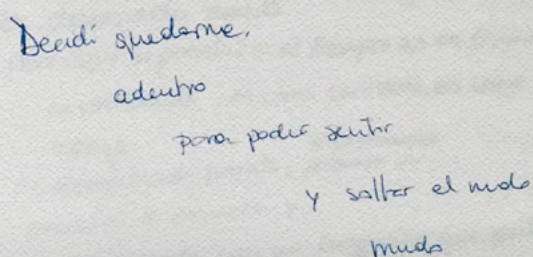 Decidí quedarme,
adentro
para poder sentir
y soltar el nudo
mudo